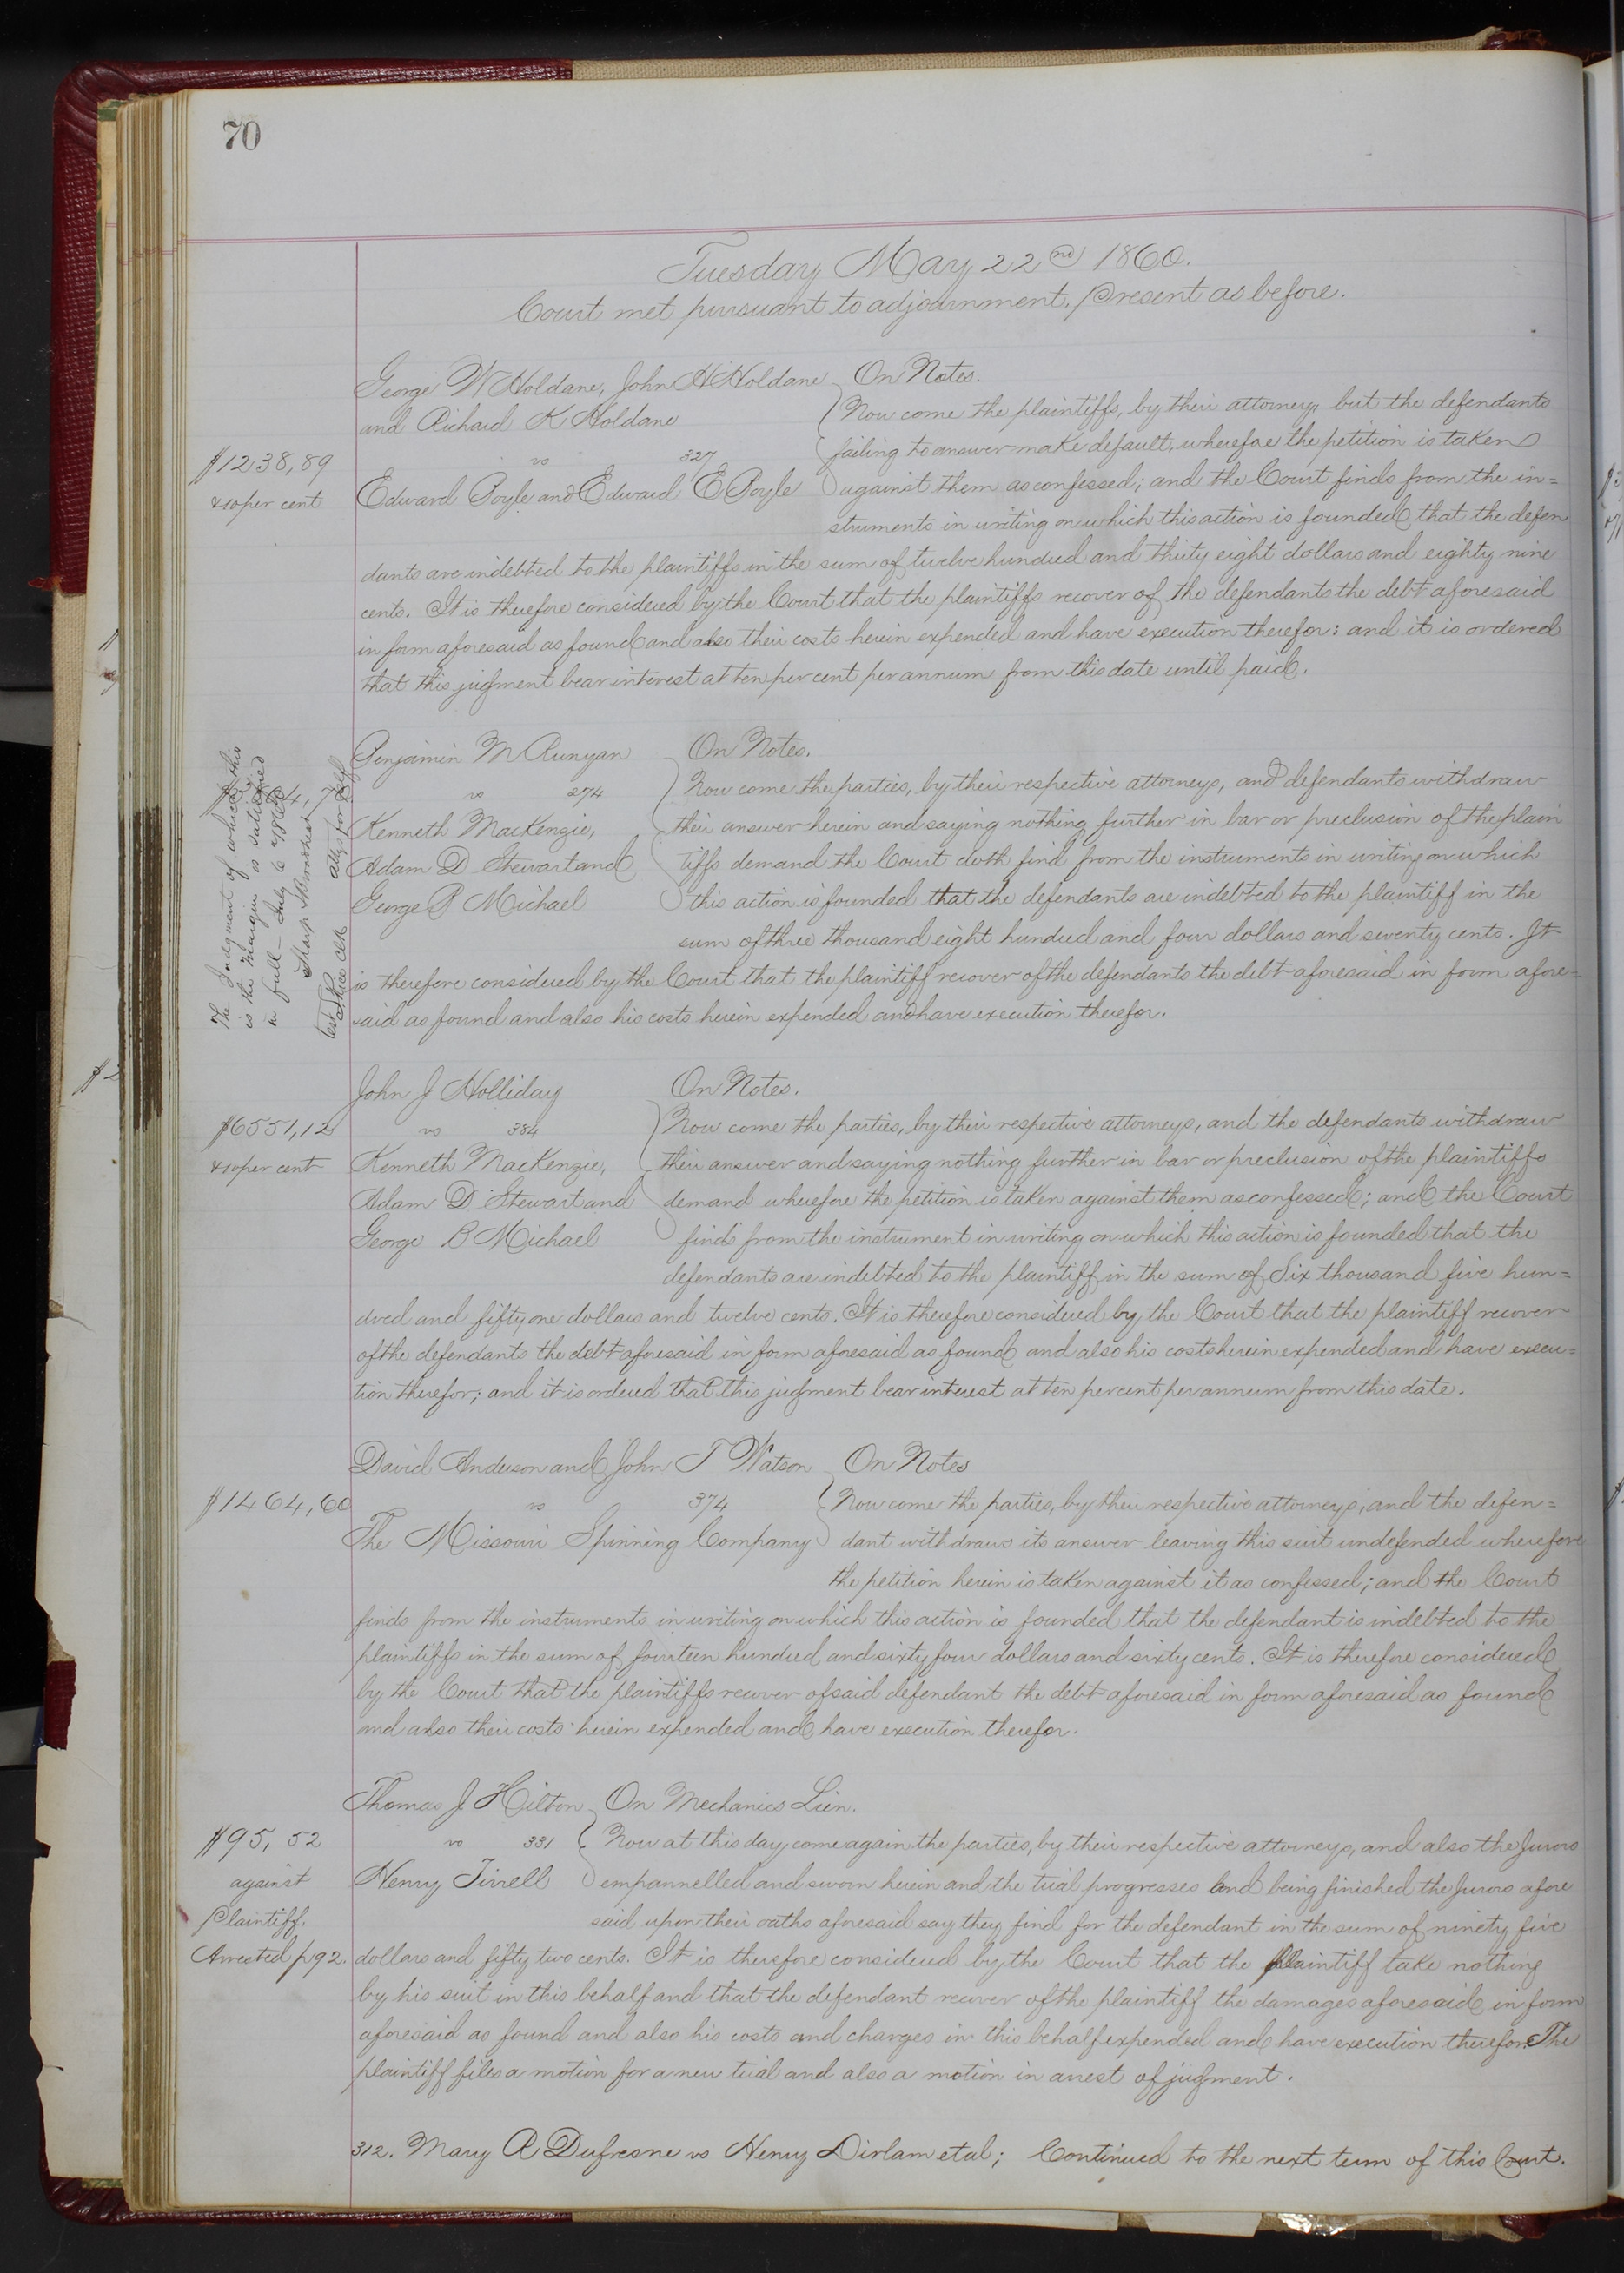 70
Tuesday May 22nd 1860.
Court met pursuant to adjournment. Present as before.
George W Holdane, John H Holdane
and Richard K Holdane
vs 327
Edward Boyle and Edward E Boyle
$1238,89
&10 per cent
On Notes.
Now come the plaintiffs, by their attorney, but the defendants
failing to answer make default, wherefore the petition is taken
against them as confessed; and the Court finds from the in=
struments in writing on which this action is founded that the defen
dants are indebted to the plaintiffs in the sum of twelve hundred and thirty eight dollars and eighty nine
cents. It is therefore considered by the Court that the plaintiffs recover of the defendants the debt aforesaid
in form aforesaid as found and also their costs herein expended and have execution therefor: and it is ordered
that this judgment bear interest at ten per cent per annum from this date until paid.
Benjamin M Runyan
vs 274
Kenneth MacKenzie,
Adam D Stewart and
George B Michael
The Judgment of which this
is the margin is satisfied
in full July 6 1860
Sharp &
atty for Plff
Test Rice clk
On Notes.
Now come the parties, by their respective attorneys, and defendants withdraw
their answer herein and saying nothing further in bar or preclusion of the plain
tiffs demand the Court doth find from the instruments in writing on which
this action is founded that the defendants are indebted to the plaintiff in the
sum of three thousand eight hundred and four dollars and seventy cents. It
is therefore considered by the Court that the plaintiff recover of the defendants the debt aforesaid in form afore=
said as found and also his costs herein expended and have execution therefor.
John J Holliday
vs 384
Kenneth MacKenzie,
Adam D Stewart and
George B Michael
$6551,12
&10 per cent
On Notes.
Now come the parties, by their respective attorneys, and the defendants withdraw
their answer and saying nothing further in bar or preclusion of the plaintiffs
demand wherefore the petition is taken against them as confessed; and the Court
finds from the instrument in writing on which this action is founded that the
defendants are indebted to the plaintiff in the sum of Six thousand five hun=
dred and fifty one dollars and twelve cents. It is therefore considered by the Court that the plaintiff recover
of the defendants the debt aforesaid in form aforesaid as found and also his costs herein expended and have execu=
tion therefor; and it is ordered that this judgment bear interest at ten per cent per annum from this date.
David Anderson and John T Watson
vs 374
The Missouri Spinning Company
$1464,60
On Notes
Now come the parties, by their respective attorneys, and the defen=
dant withdraws its answer leaving this suit undefended wherefore
the petition herein is taken against it as confessed; and the Court
finds from the instruments in writing on which this action is founded that the defendant is indebted to the
plaintiffs in the sum of fourteen hundred and sixty four dollars and sixty cents. It is therefore considered
by the Court that the plaintiffs recover of said defendant the debt aforesaid in form aforesaid as found
and also their costs herein expended and have execution therefor.
Thomas J Hilton
vs 331
Henry Tirrell
$95,52
against
Plaintiff.
Arrested p192.
On Mechanics Lien.
Now at this day come again the parties, by their respective attorneys, and also the Jurors
empannelled and sworn herein and the trial progresses and being finished the Jurors afore
said upon their oaths aforesaid say they find for the defendant in the sum of ninety five
dollars and fifty two cents. It is therefore considered by the Court that the plaintiff take nothing
by his suit in this behalf and that the defendant recover of the plaintiff the damages aforesaid in form
aforesaid as found and also his costs and charges in this behalf expended and have execution therefor. The
plaintiff files a motion for a new trial and also a motion in arrest of judgment.
312. Mary A Dufresne vs Henry Dirlam etal; Continued to the next term of this Court.